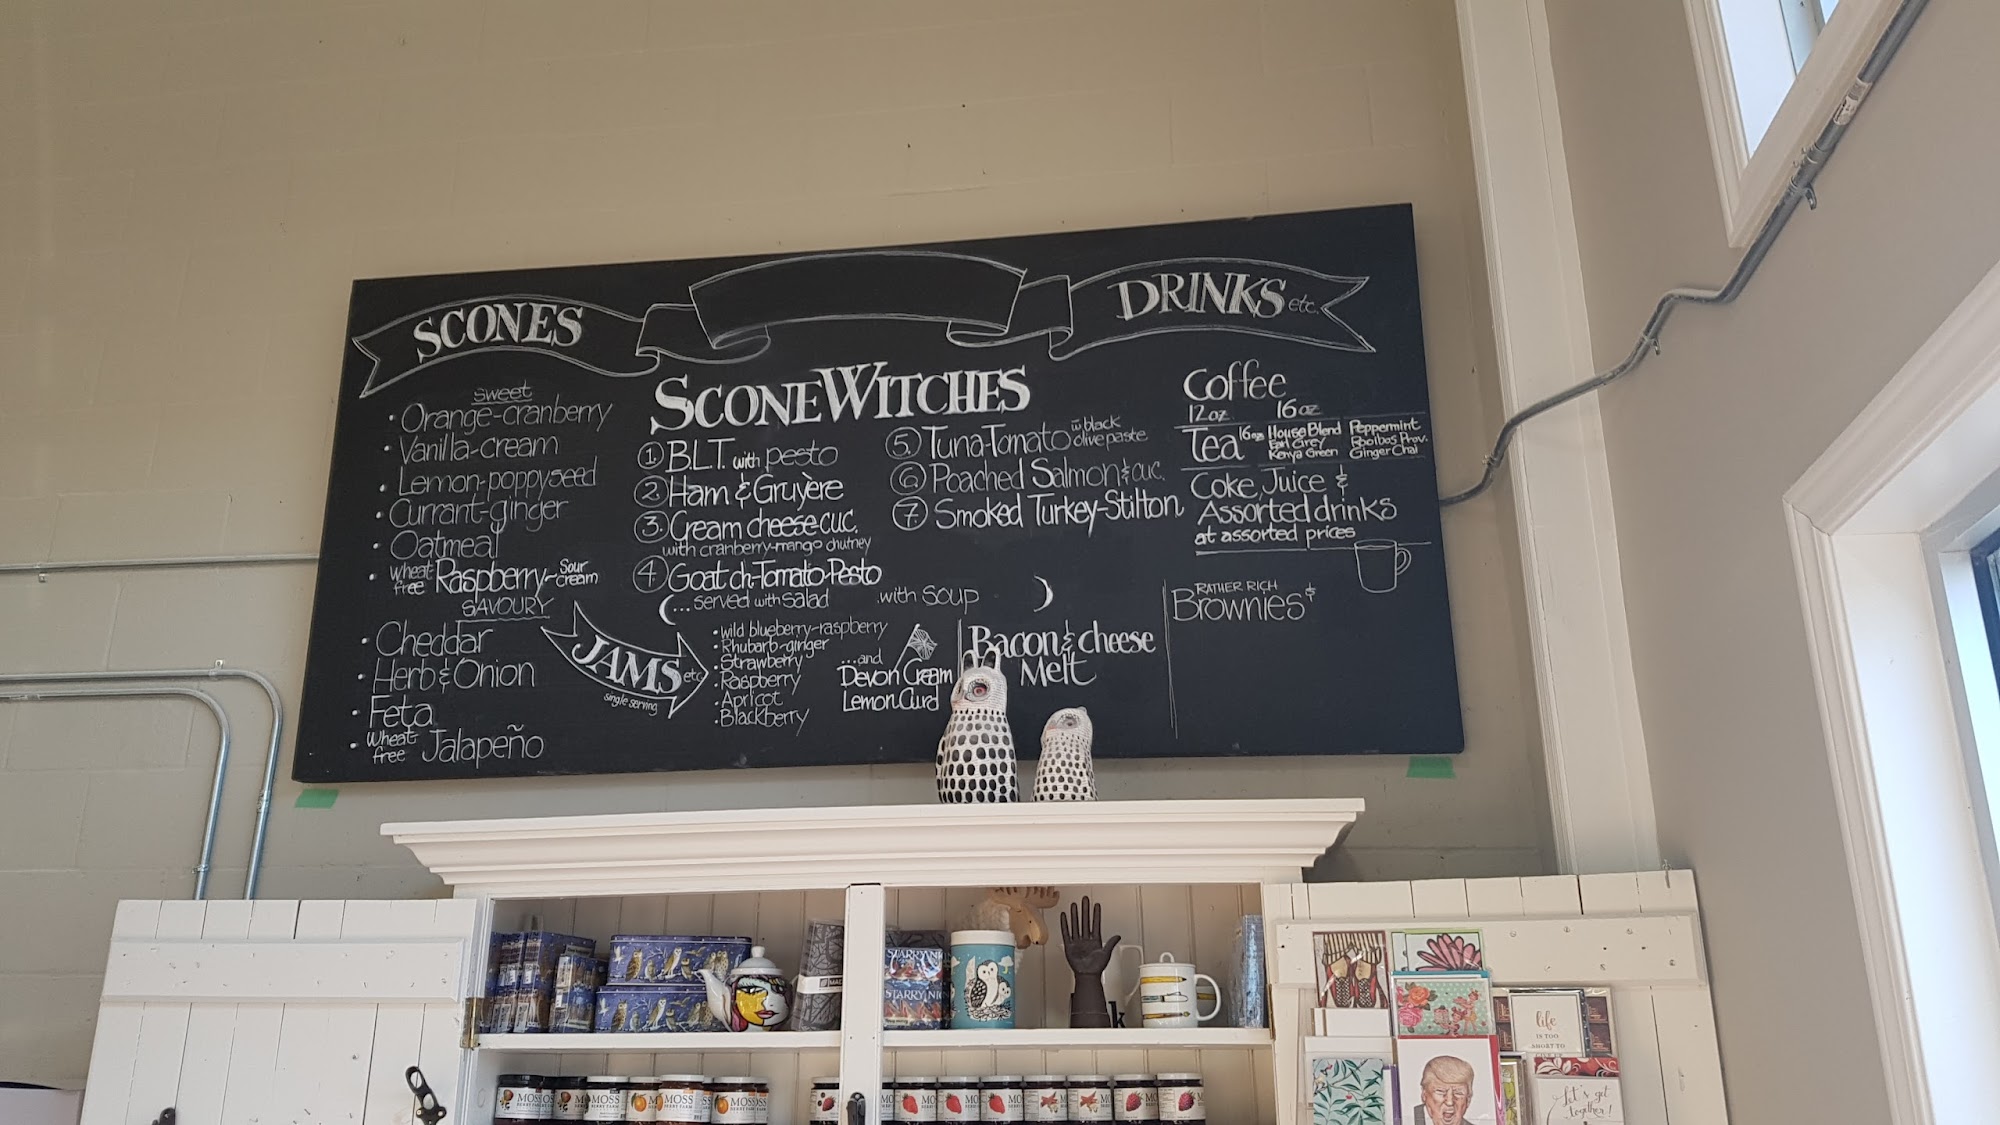 SCONES
sweet
• Orange-cranberry
• Vanilla-cream
• Lemon-poppyseed
• Currant-ginger
• Oatmeal
• wheat free Raspberry-sour cream
SAVOURY
• Cheddar
• Herb & Onion
• Feta
• Wheat free Jalapeño
SCONEWITCHES
1. B.L.T. with pesto
2. Ham & Gruyère
3. Cream cheese-cuc.
with cranberry-mango chutney
4. Goat ch-Tomato-Pesto
5. Tuna-Tomato w black olive paste
6. Poached Salmon & cuc.
7. Smoked Turkey-Stilton
(... served with salad .with soup )
JAMS etc
single serving
• wild blueberry-raspberry
• Rhubarb-ginger
• Strawberry
• Raspberry
• Apricot
• Blackberry
...and
Devon Cream
Lemon Curd
Bacon & cheese
Melt
DRINKS etc.
Coffee
12oz 16oz
Tea 16oz House Blend Peppermint
Earl Grey Rooibos Prov.
Kenya Green Ginger Chai
Coke, Juice &
Assorted drinks
at assorted prices
RATHER RICH
Brownies &
STARRY NI
STARRY NI
k
MOSS
BERRY FARM
MOSS
BERRY FARM
MOSS
BERRY FARM
life
IS TOO
SHORT TO
Let's get
together!